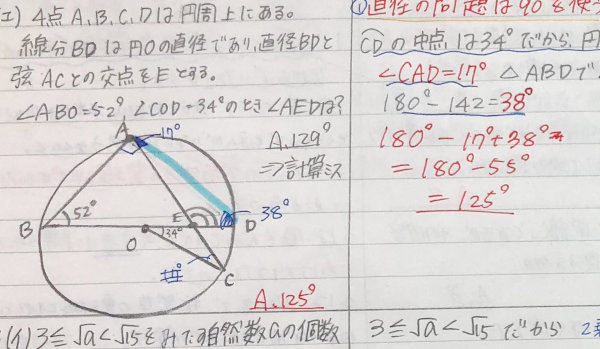 (エ) 4点A,B,C,Dは円周上にある。
線分BDは円Oの直径であり、直径BDと
弦ACとの交点をEとする。
∠ABO=52° ∠COD=34°のとき∠AEDは?
A.129°
⇒計算ミス
A
17°
B
52°
O
34°
E
D
38°
C
A.125°
①直径の問題は90を使
CDの中点は34°だから、円
∠CAD=17° △ABDで
180°-142=38°
180°-17°+38°
=180°-55°
=125°
(イ) 3≦√a<√15をみたす自然数aの個数
3≦√a<√15 だから 2乗